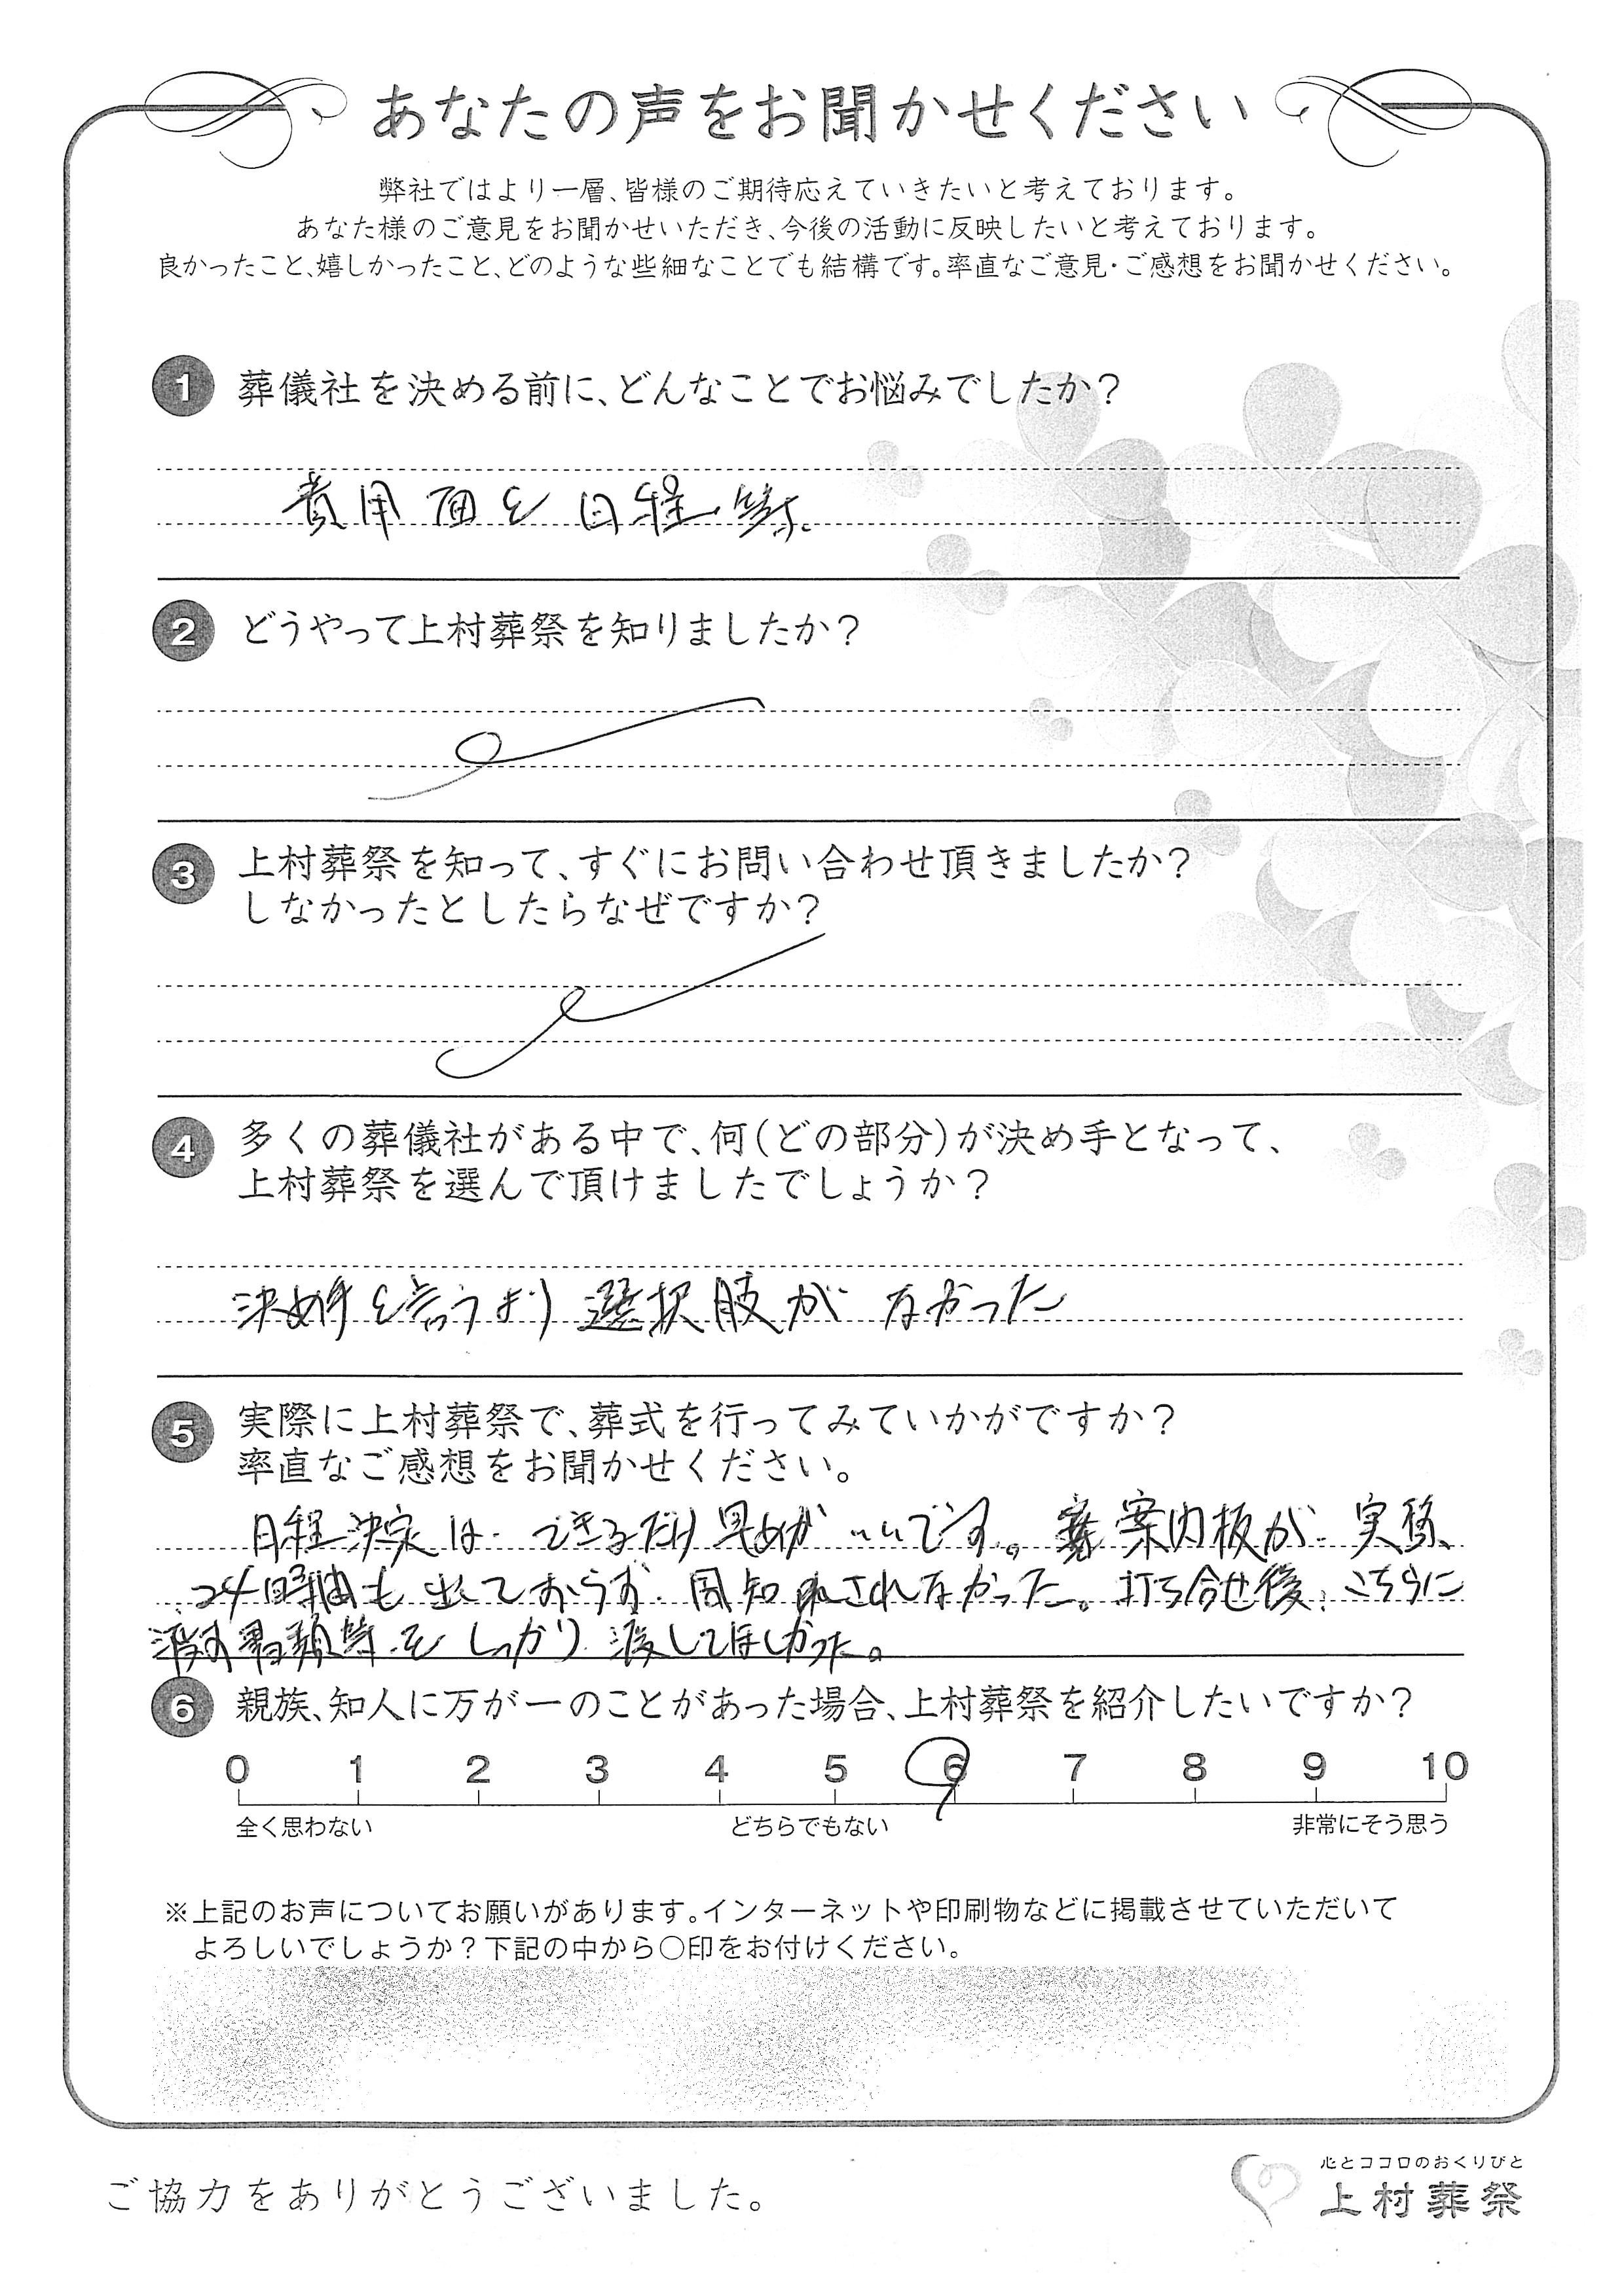 あなたの声をお聞かせください
弊社ではより一層、皆様のご期待応えていきたいと考えております。
あなた様のご意見をお聞かせいただき、今後の活動に反映したいと考えております。
良かったこと、嬉しかったこと、どのような些細なことでも結構です。率直なご意見・ご感想をお聞かせください。
1 葬儀社を決める前に、どんなことでお悩みでしたか？
費用面と日程等.
2 どうやって上村葬祭を知りましたか？
3 上村葬祭を知って、すぐにお問い合わせ頂きましたか？
しなかったとしたらなぜですか？
4 多くの葬儀社がある中で、何（どの部分）が決め手となって、
上村葬祭を選んで頂けましたでしょうか？
決め手と言うより選択肢がなかった
5 実際に上村葬祭で、葬式を行ってみていかがですか？
率直なご感想をお聞かせください。
日程決定は できるだけ早めがいいです。案内板が 実際、
24時間も出ておらず 周知されなかった。打ち合せ後、こちらに
渡す書類等を しっかり 渡してほしかった。
6 親族、知人に万が一のことがあった場合、上村葬祭を紹介したいですか？
0 1 2 3 4 5 6 7 8 9 10
全く思わない どちらでもない 非常にそう思う
※上記のお声についてお願いがあります。インターネットや印刷物などに掲載させていただいて
よろしいでしょうか？下記の中から〇印をお付けください。
ご協力をありがとうございました。
心とココロのおくりびと
上村葬祭